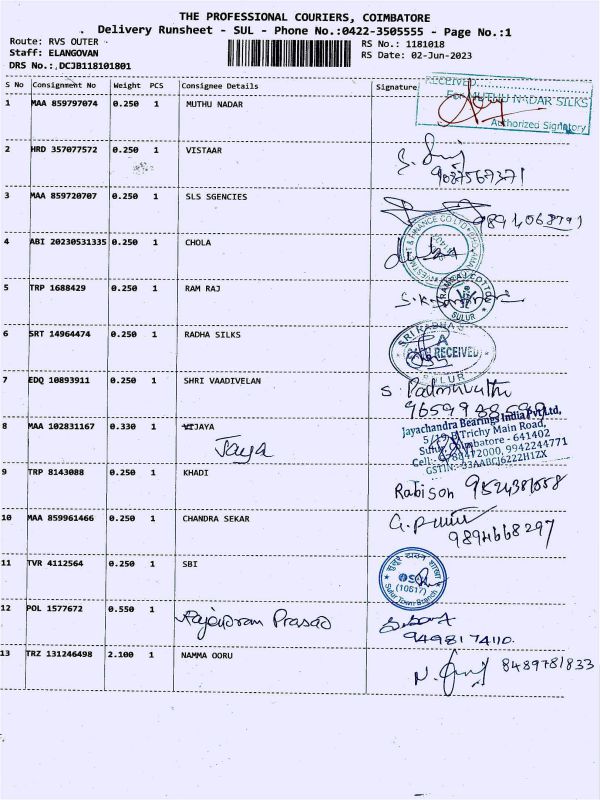 THE PROFESSIONAL COURIERS, COIMBATORE
Delivery Runsheet - SUL - Phone No.:0422-3505555 - Page No.:1
Route: RVS OUTER
RS No.: 1181018
Staff: ELANGOVAN
RS Date: 02-Jun-2023
DRS No.:.DCJB118101801
S No Consignment No Weight PCS Consignee Details Signature
RECEIVED
For MUTHU NADAR SILKS
Authorized Signatory
1 MAA 859797074 0.250 1 MUTHU NADAR
2 HRD 357077572 0.250 1 VISTAAR
9087567371
3 MAA 859720707 0.250 1 SLS SGENCIES
9894068791
4 ABI 20230531335 0.250 1 CHOLA
5 TRP 1688429 0.250 1 RAM RAJ
SULUR
6 SRT 14964474 0.250 1 RADHA SILKS
SRI RADHA
RECEIVED
SULUR
7 EDQ 10893911 0.250 1 SHRI VAADIVELAN
S Padmavathi
8 MAA 102831167 0.330 1 VIJAYA
Jaya
Jayachandra Bearings India Pvt Ltd,
Trichy Main Road,
Coimbatore - 641402
9942244771
GSTIN:-33AABCJ6222H1ZX
9 TRP 8143088 0.250 1 KHADI
Rabison
10 MAA 859961466 0.250 1 CHANDRA SEKAR
9894668297
11 TVR 4112564 0.250 1 SBI
(10617)
Sulur Town Branch
12 POL 1577672 0.550 1 Rajendran Prasad
9498174110.
13 TRZ 131246498 2.100 1 NAMMA OORU
8489781833